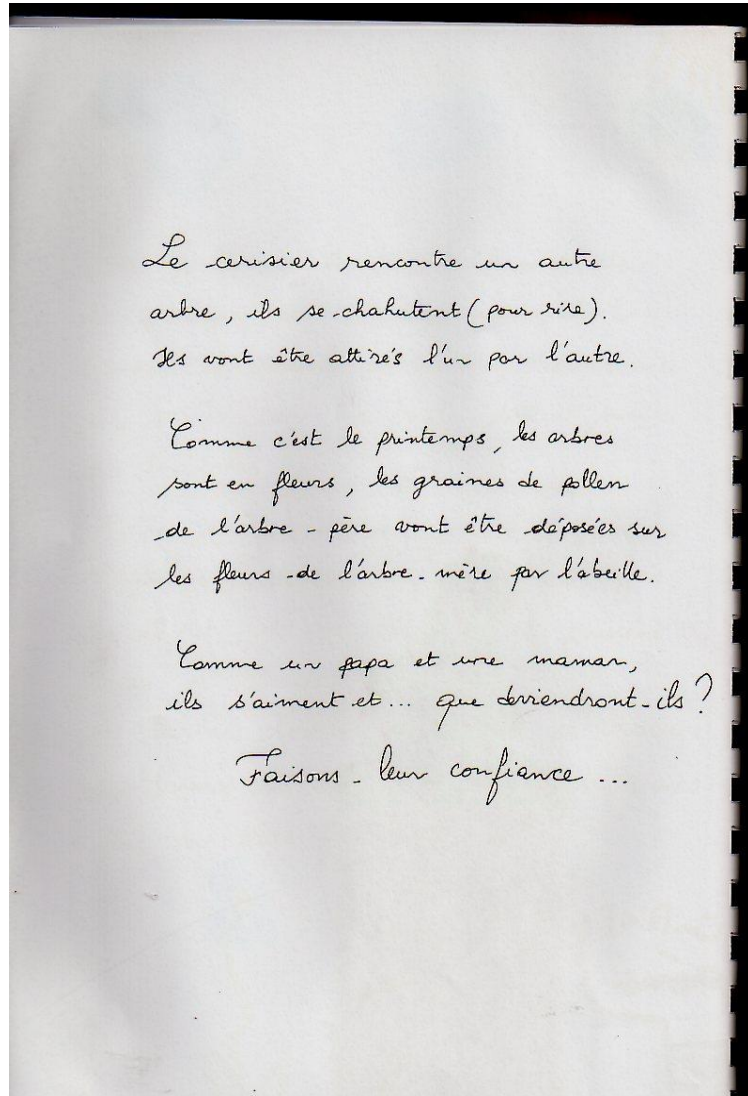 Le cerisier rencontre un autre
arbre, ils se chahutent (pour rire).
Ils vont être attirés l'un par l'autre.
Comme c'est le printemps, les arbres
sont en fleurs, les graines de pollen
de l'arbre-père vont être déposées sur
les fleurs de l'arbre-mère par l'abeille.
Comme un papa et une maman,
ils s'aiment et... que deviendront-ils ?
Faisons-leur confiance ...